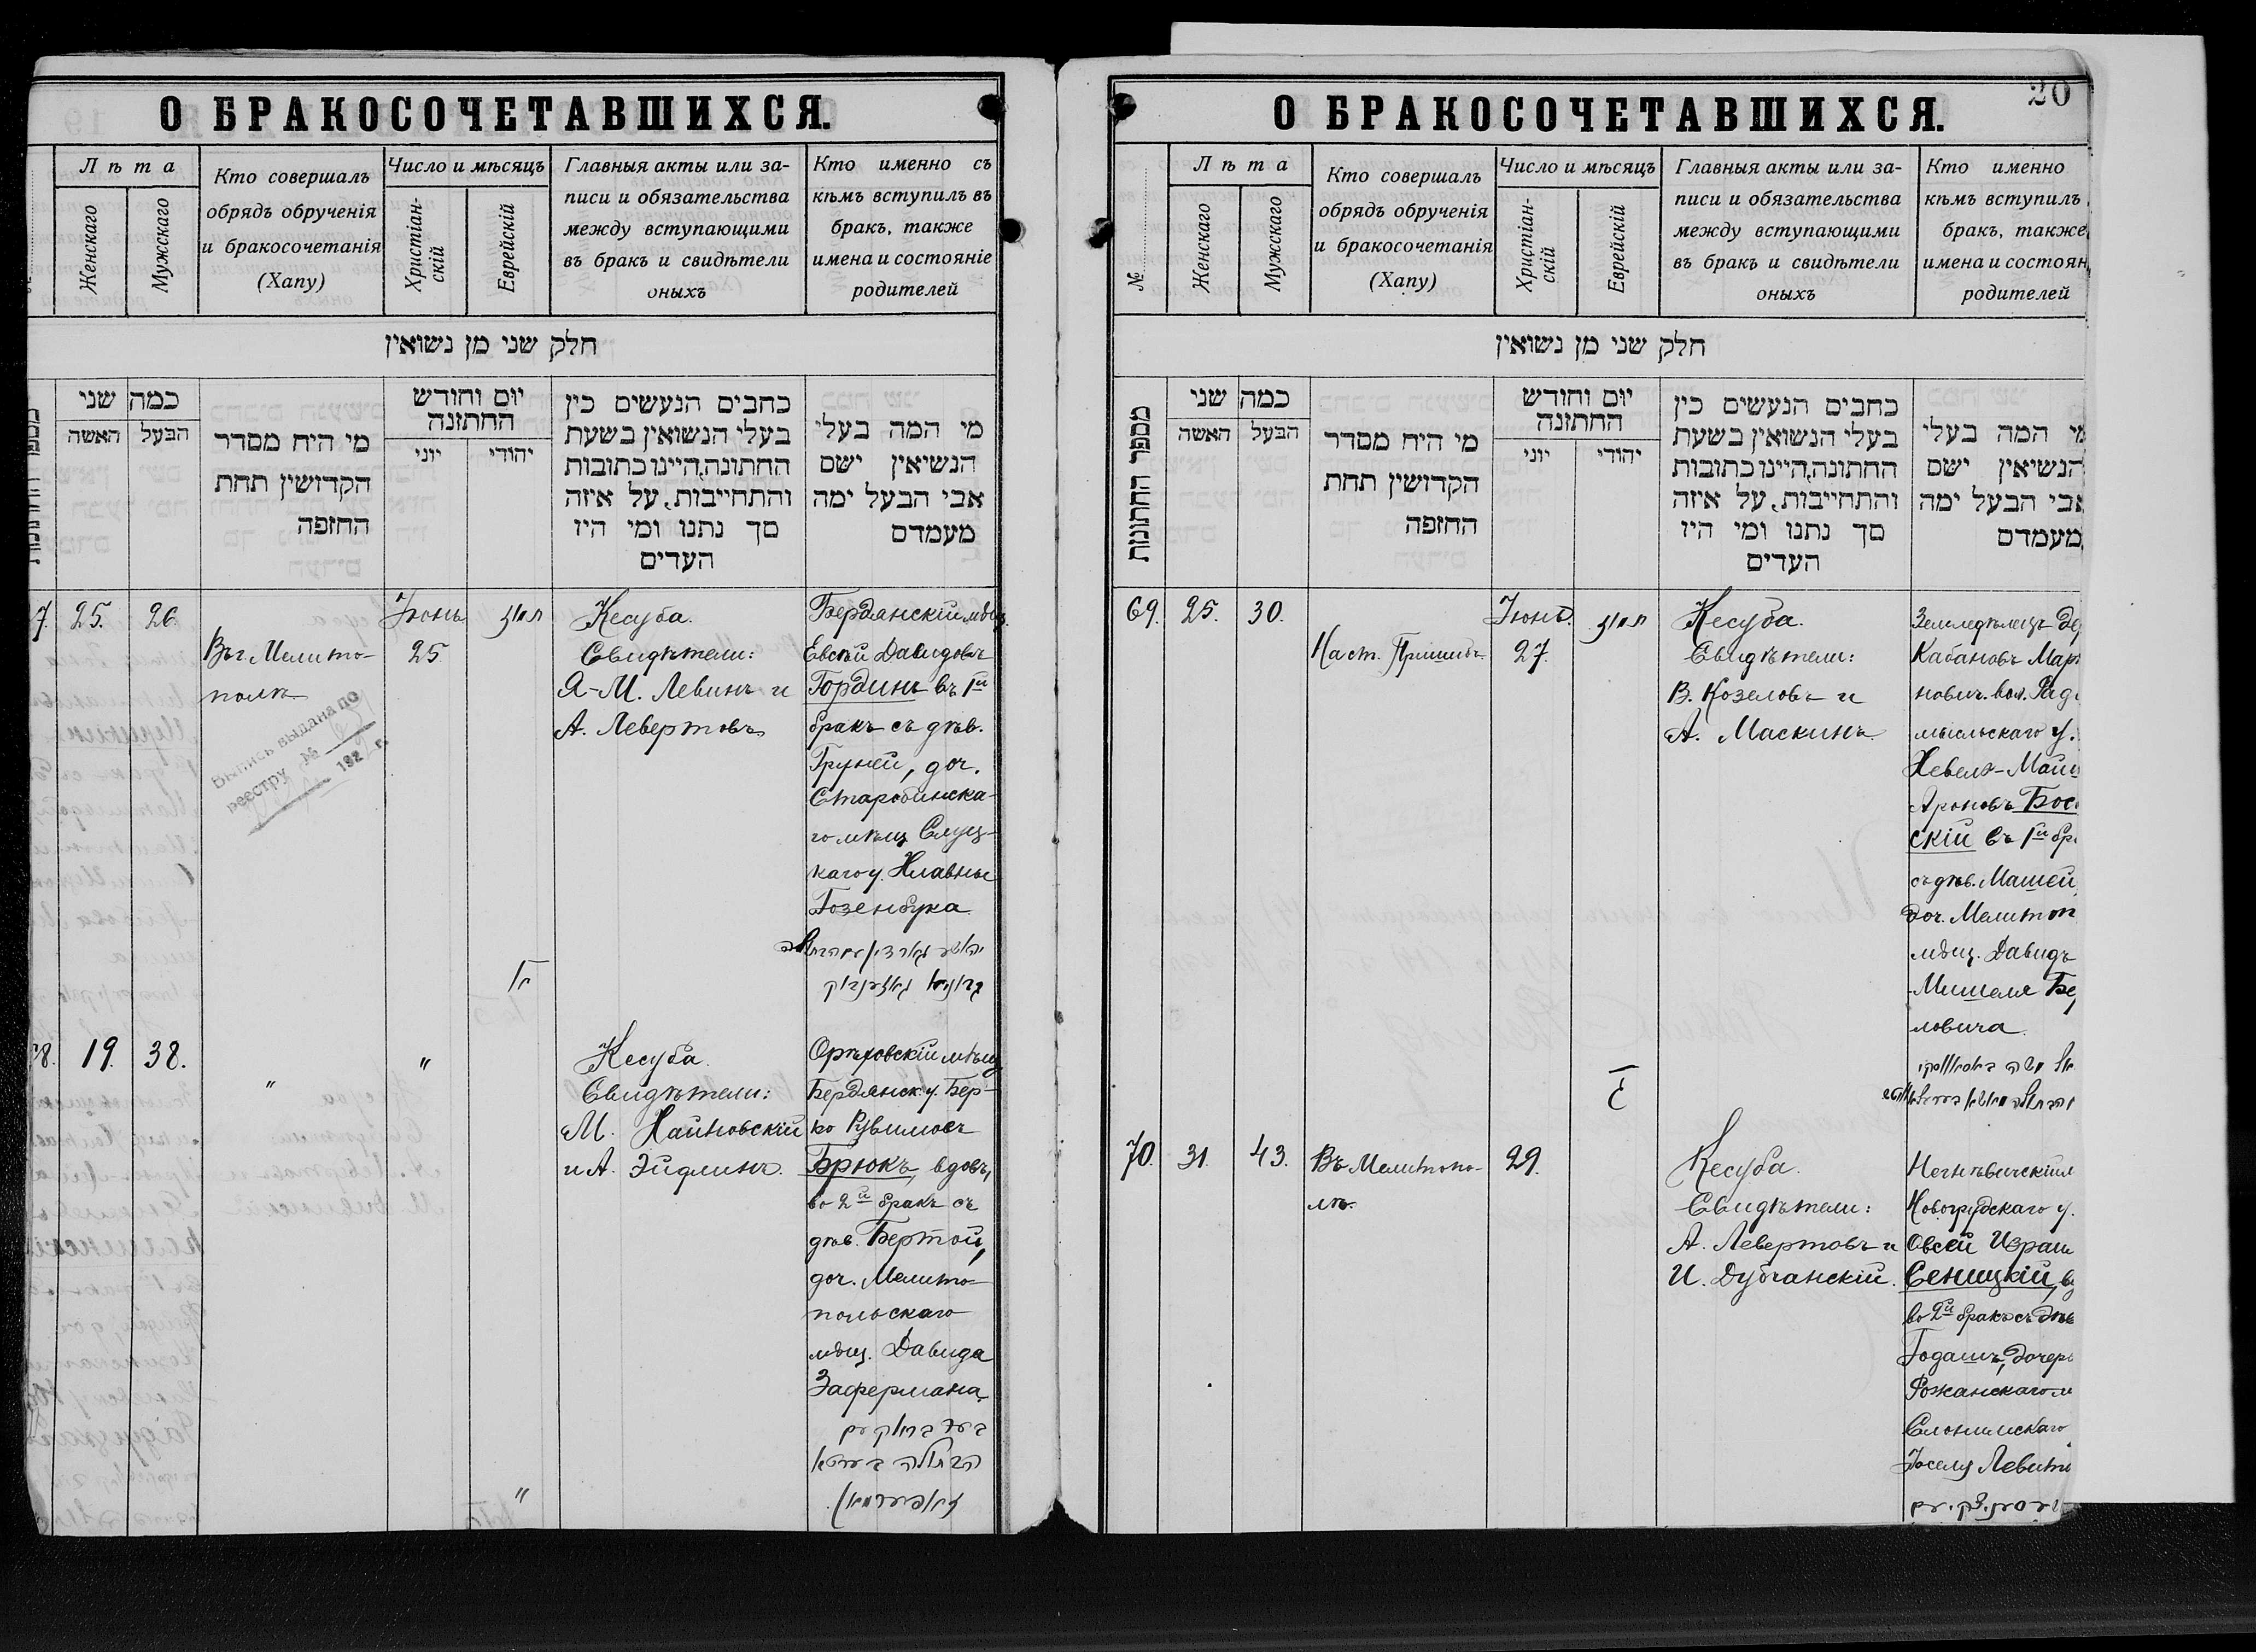 О БРАКОСОЧЕТАВШИХСЯ.
Лѣта
Женскаго
Мужскаго
Кто совершалъ
обрядъ обрученія
и бракосочетанія
(Хапу)
Число и мѣсяцъ
Христіан-
скій
Еврейскій
Главныя акты или за-
писи и обязательства
между вступающими
въ бракъ и свидѣтели
оныхъ
Кто именно съ
кѣмъ вступилъ въ
бракъ, также
имена и состояніе
родителей
חלק שני מן נשואין
כמה שני
האשה
הבעל
מי היח מסדר
הקדושין תחת
החזפה
יום וחודש
החתזנה
יוני
יהודי
כחבים הנעשים כין
בעלי הנשואין בשעת
החתונה,היינו כתובות
והתחייבות, על איזה
סך נתנו ומי היז
העדים
מי המה בעלי
הנשיאין ישם
אבי הבעל ימה
מעמדם
7. 25. 26.
Въ г. Мелито-
полѣ
Выпись выдана по
реестру №
192 г.
Іюнь
25
Кесуба.
Свидѣтели:
Я-М. Левинъ и
А. Левертовъ
Бердянскій мѣщ.
Евсѣй Давидовъ
Гординъ въ 1й
бракъ съ дѣв.
Груней, доч.
Старобинска-
го мѣщ Слуц-
каго у. Хлавны
Гозенбука
8. 19. 38.
"
"
"
Кесуба.
Свидѣтели:
М. Хайновскій
и А. Эйдлинъ.
Орѣховскій мѣщ
Бердянск. у. Бер-
ко Рувимовъ
Брюкъ, вдовъ,
во 2й бракъ съ
дѣв. Бертой,
доч. Мелито-
польскаго
мѣщ. Давида
Зафермана
О БРАКОСОЧЕТАВШИХСЯ.
20
№
Лѣта
Женскаго
Мужскаго
Кто совершалъ
обрядъ обрученія
и бракосочетанія
(Хапу)
Число и мѣсяцъ
Христіан-
скій
Еврейскій
Главныя акты или за-
писи и обязательства
между вступающими
въ бракъ и свидѣтели
оныхъ
Кто именно
кѣмъ вступилъ
бракъ, также
имена и состоян
родителей
חלק שני מן נשואין
מספר החתונות
כמה שני
האשה
הבעל
מי היח מסדר
הקדושין תחת
החזפה
יום וחודש
החתזנה
יוני
יהודי
כחבים הנעשים כין
בעלי הנשואין בשעת
החתונה,היינו כתובות
והתחייבות, על איזה
סך נתנו ומי היז
העדים
מי המה בעלי
הנשיאין ישם
אבי הבעל ימה
מעמדם
69. 25. 30.
На ст. Пришибъ
Іюнь.
27.
Кесуба.
Свидѣтели:
В. Козеловъ и
А. Маскинъ
Земледѣлецъ де
Кабановъ Март
нович. вол. Рад
мысльскаго у.
Невелъ-Май
Ароновъ Бос
скій въ 1й бр
съ дѣв. Машей,
доч. Мелитоп
мѣщ. Давидъ
-Мишеля Бе
ловича
70. 31. 43.
Въ Мелитопо-
лѣ.
29.
Кесуба.
Свидѣтели:
А. Левертовъ и
И. Дубчанскій.
Негнѣвичскій
Новогрудскаго у.
Овсей Израи
Сеницкій, в
во 2й бракъ съ дѣв
Годашъ, дочерь
Рожанскаго м
Слонимскаго
Іоселя Левит